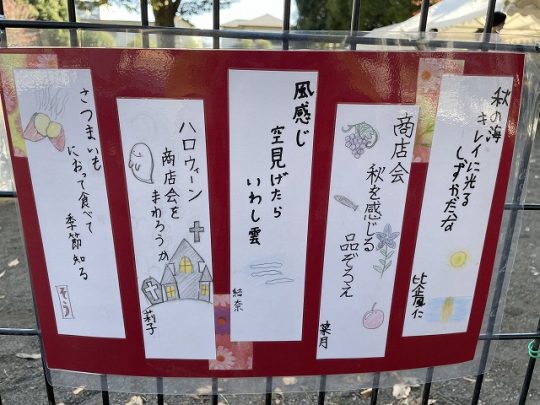 秋の海
キレイに光る
しずかだな
商店会
秋を感じる
品ぞろえ
葉月
風感じ
空見げたら
いわし雲
結奈
ハロウィーン
商店会を
まわろうか
莉子
さつまいも
におって食べて
季節知る
そう